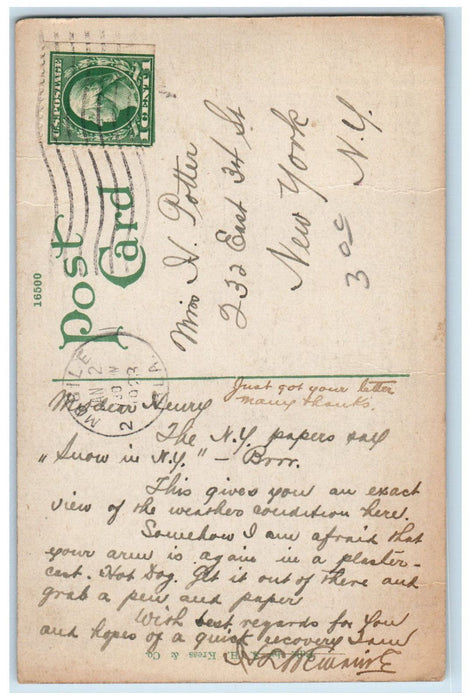 16500
Post
Card
U.S. POSTAGE
1 CENT 1
MOBILE
2
ALA.
Miss H. Potter
232 East 34 St
New York
N.Y.
300
Just got your letter
many thanks.
My dear Henry
The N.Y. papers say
„Snow in N.Y." – Brrr.
This gives you an exact
view of the weather condition here.
Somehow I am afraid that
your arm is again in a plaster-
cast. Hot Dog. Get it out of there and
grab a pen and paper
With best regards for you
and hopes of a quick recovery I am
H. Kress & Co.